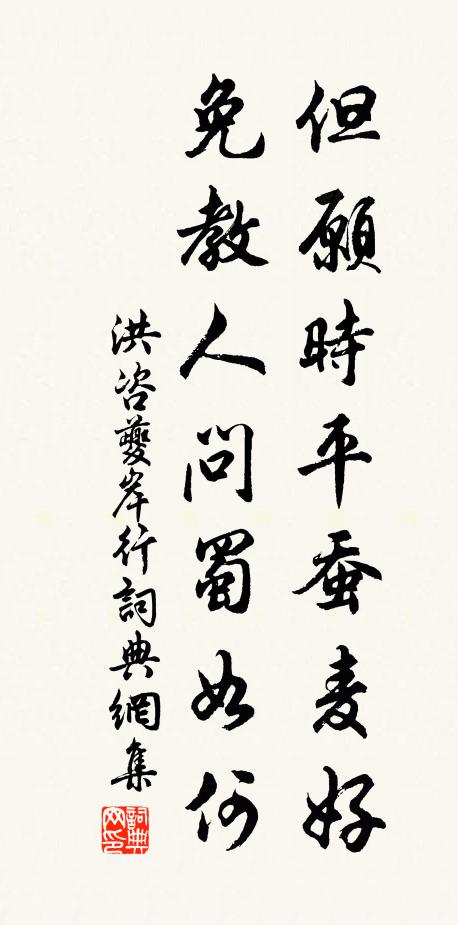 但願時平蚕麦好
免教人問蜀如何
洪咨夔崒行詞典網集
詞典
网印